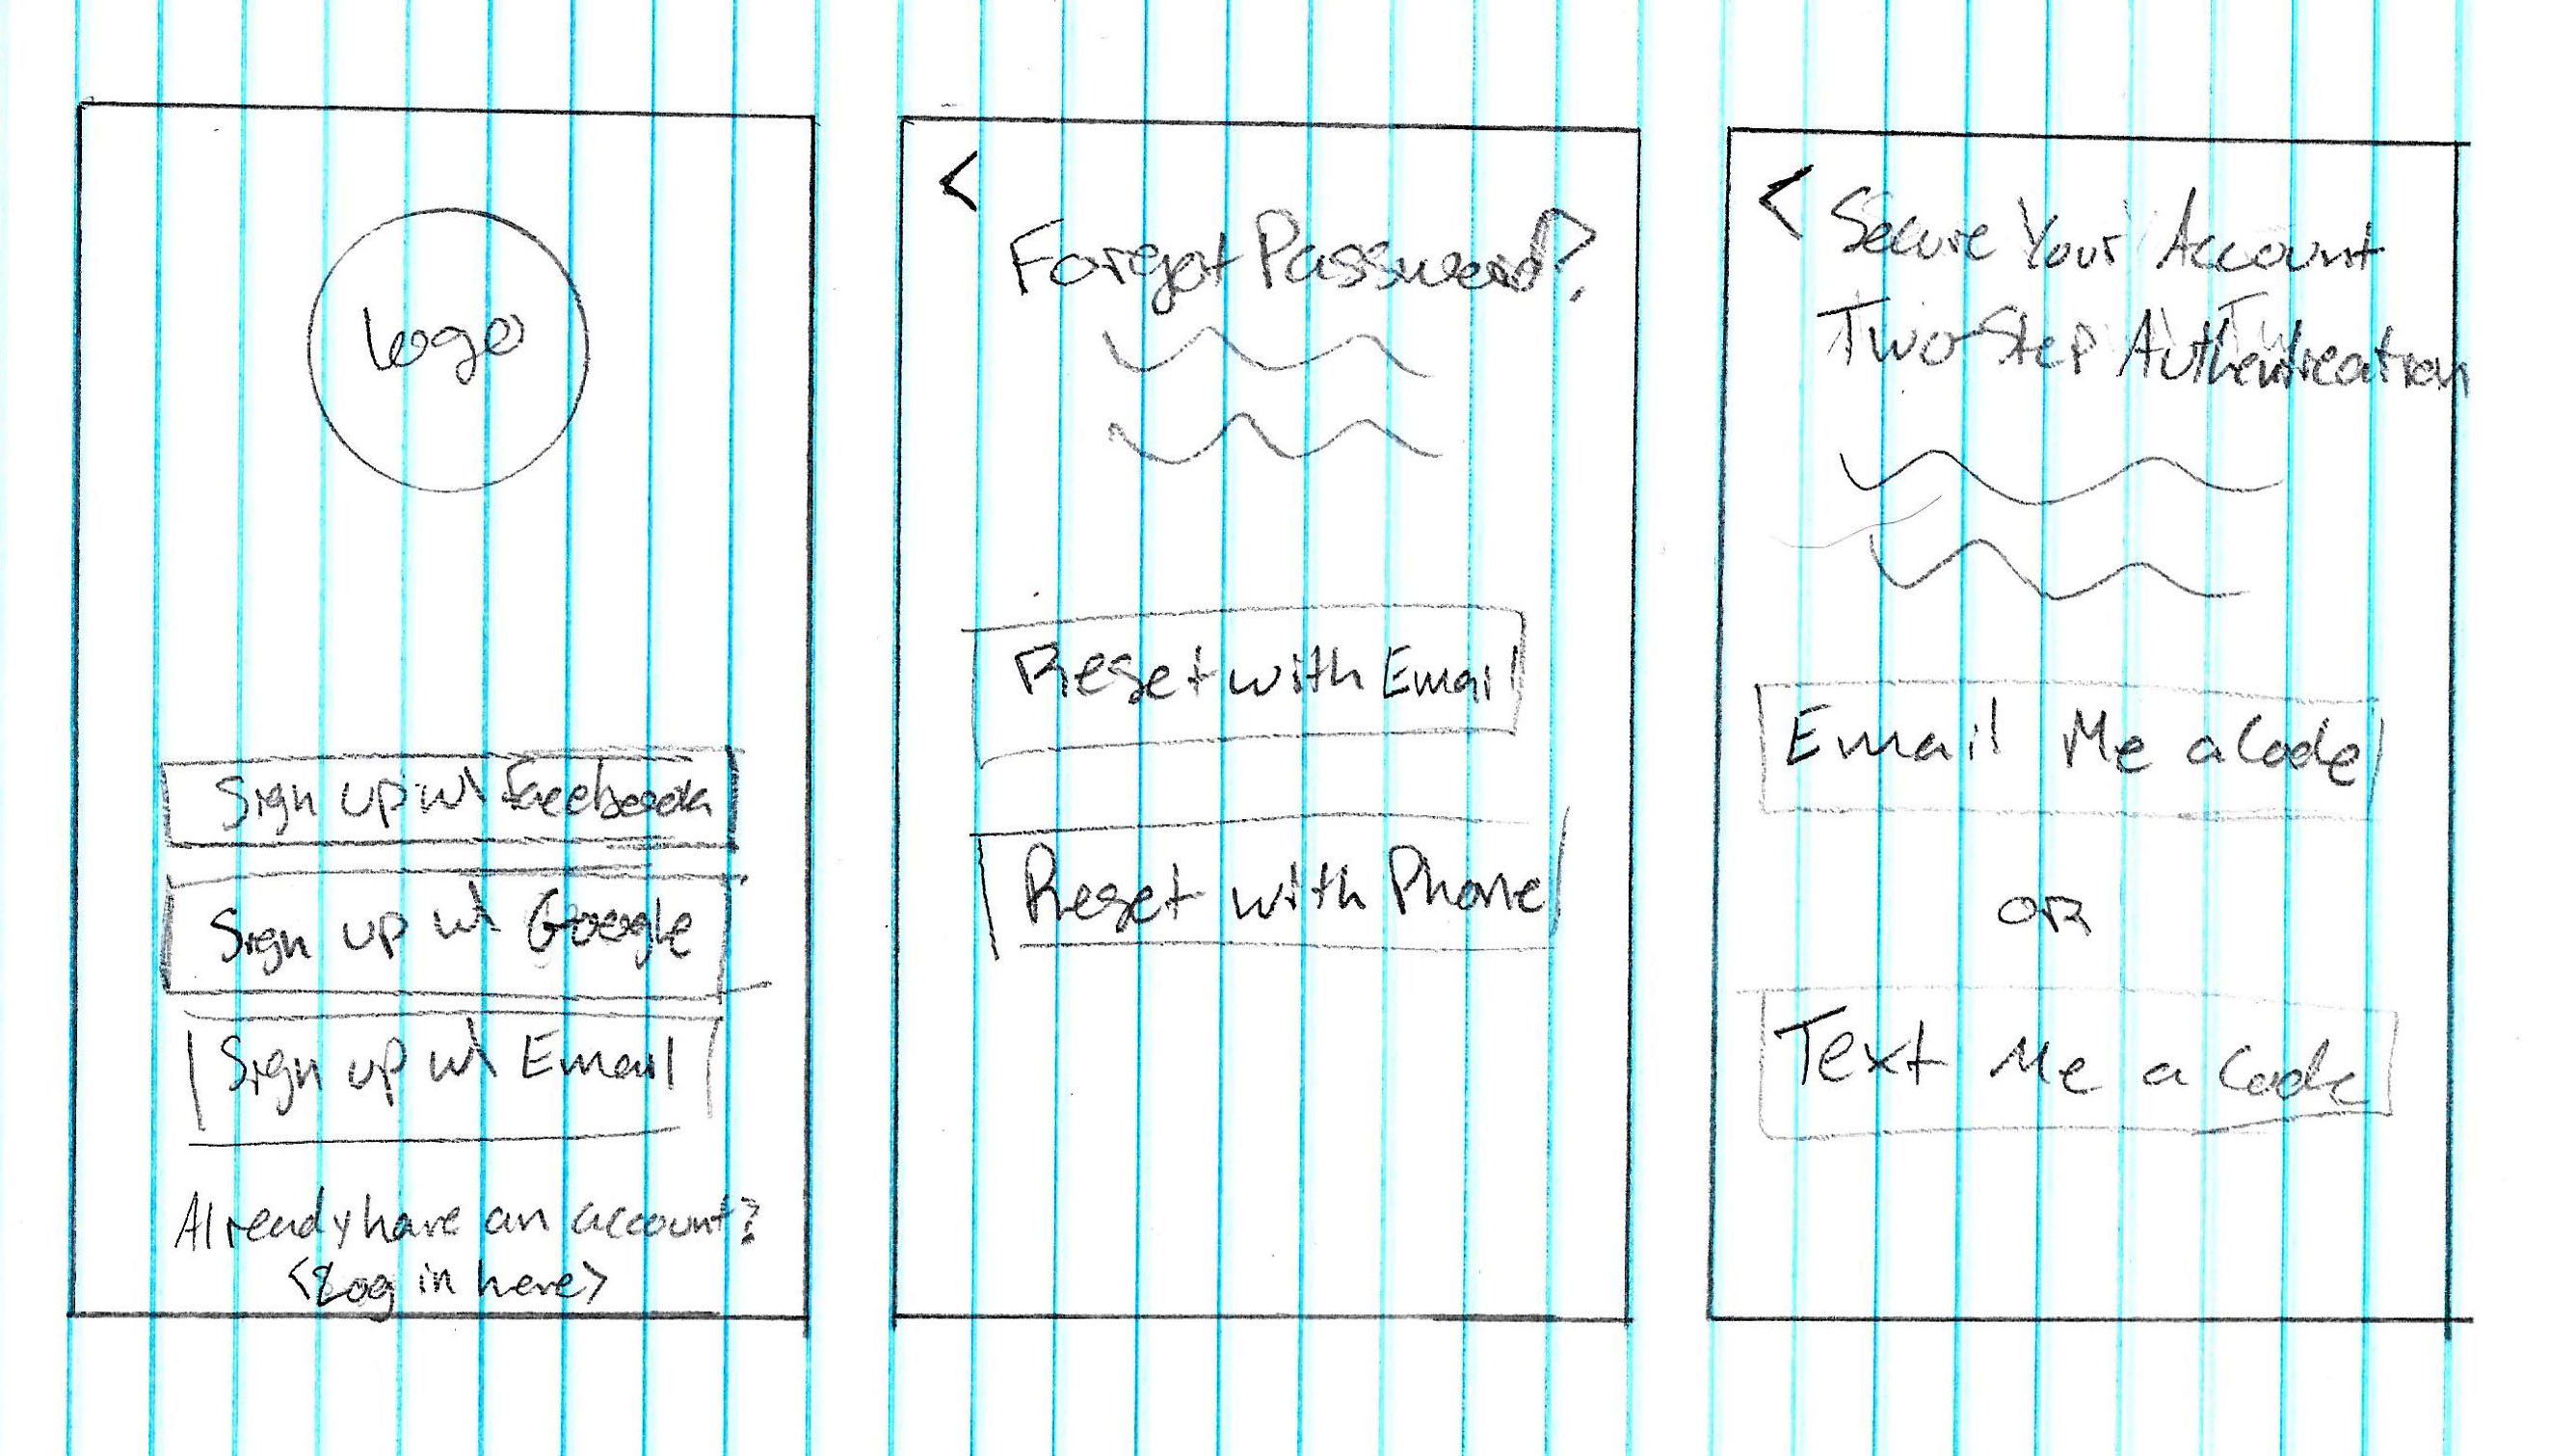 Logo
Sign up w\ Facebook
Sign up w\ Google
Sign up w\ Email
Already have an account?
<Log in here>
<
Forgot Password?
Reset with Email
Reset with Phone
<
Secure Your Account
Two-Step Authentication
Email Me a Code
OR
Text Me a Code